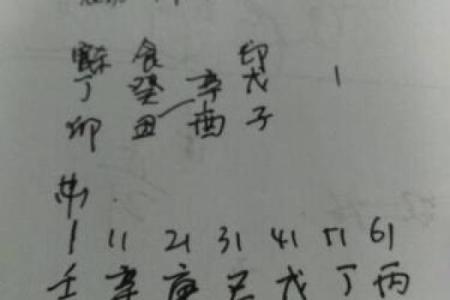 食 印
丁 癸 辛 戊 1
卯 丑 酉 子
1 11 21 31 41 51 61
壬 辛 庚 己 戊 丁 丙